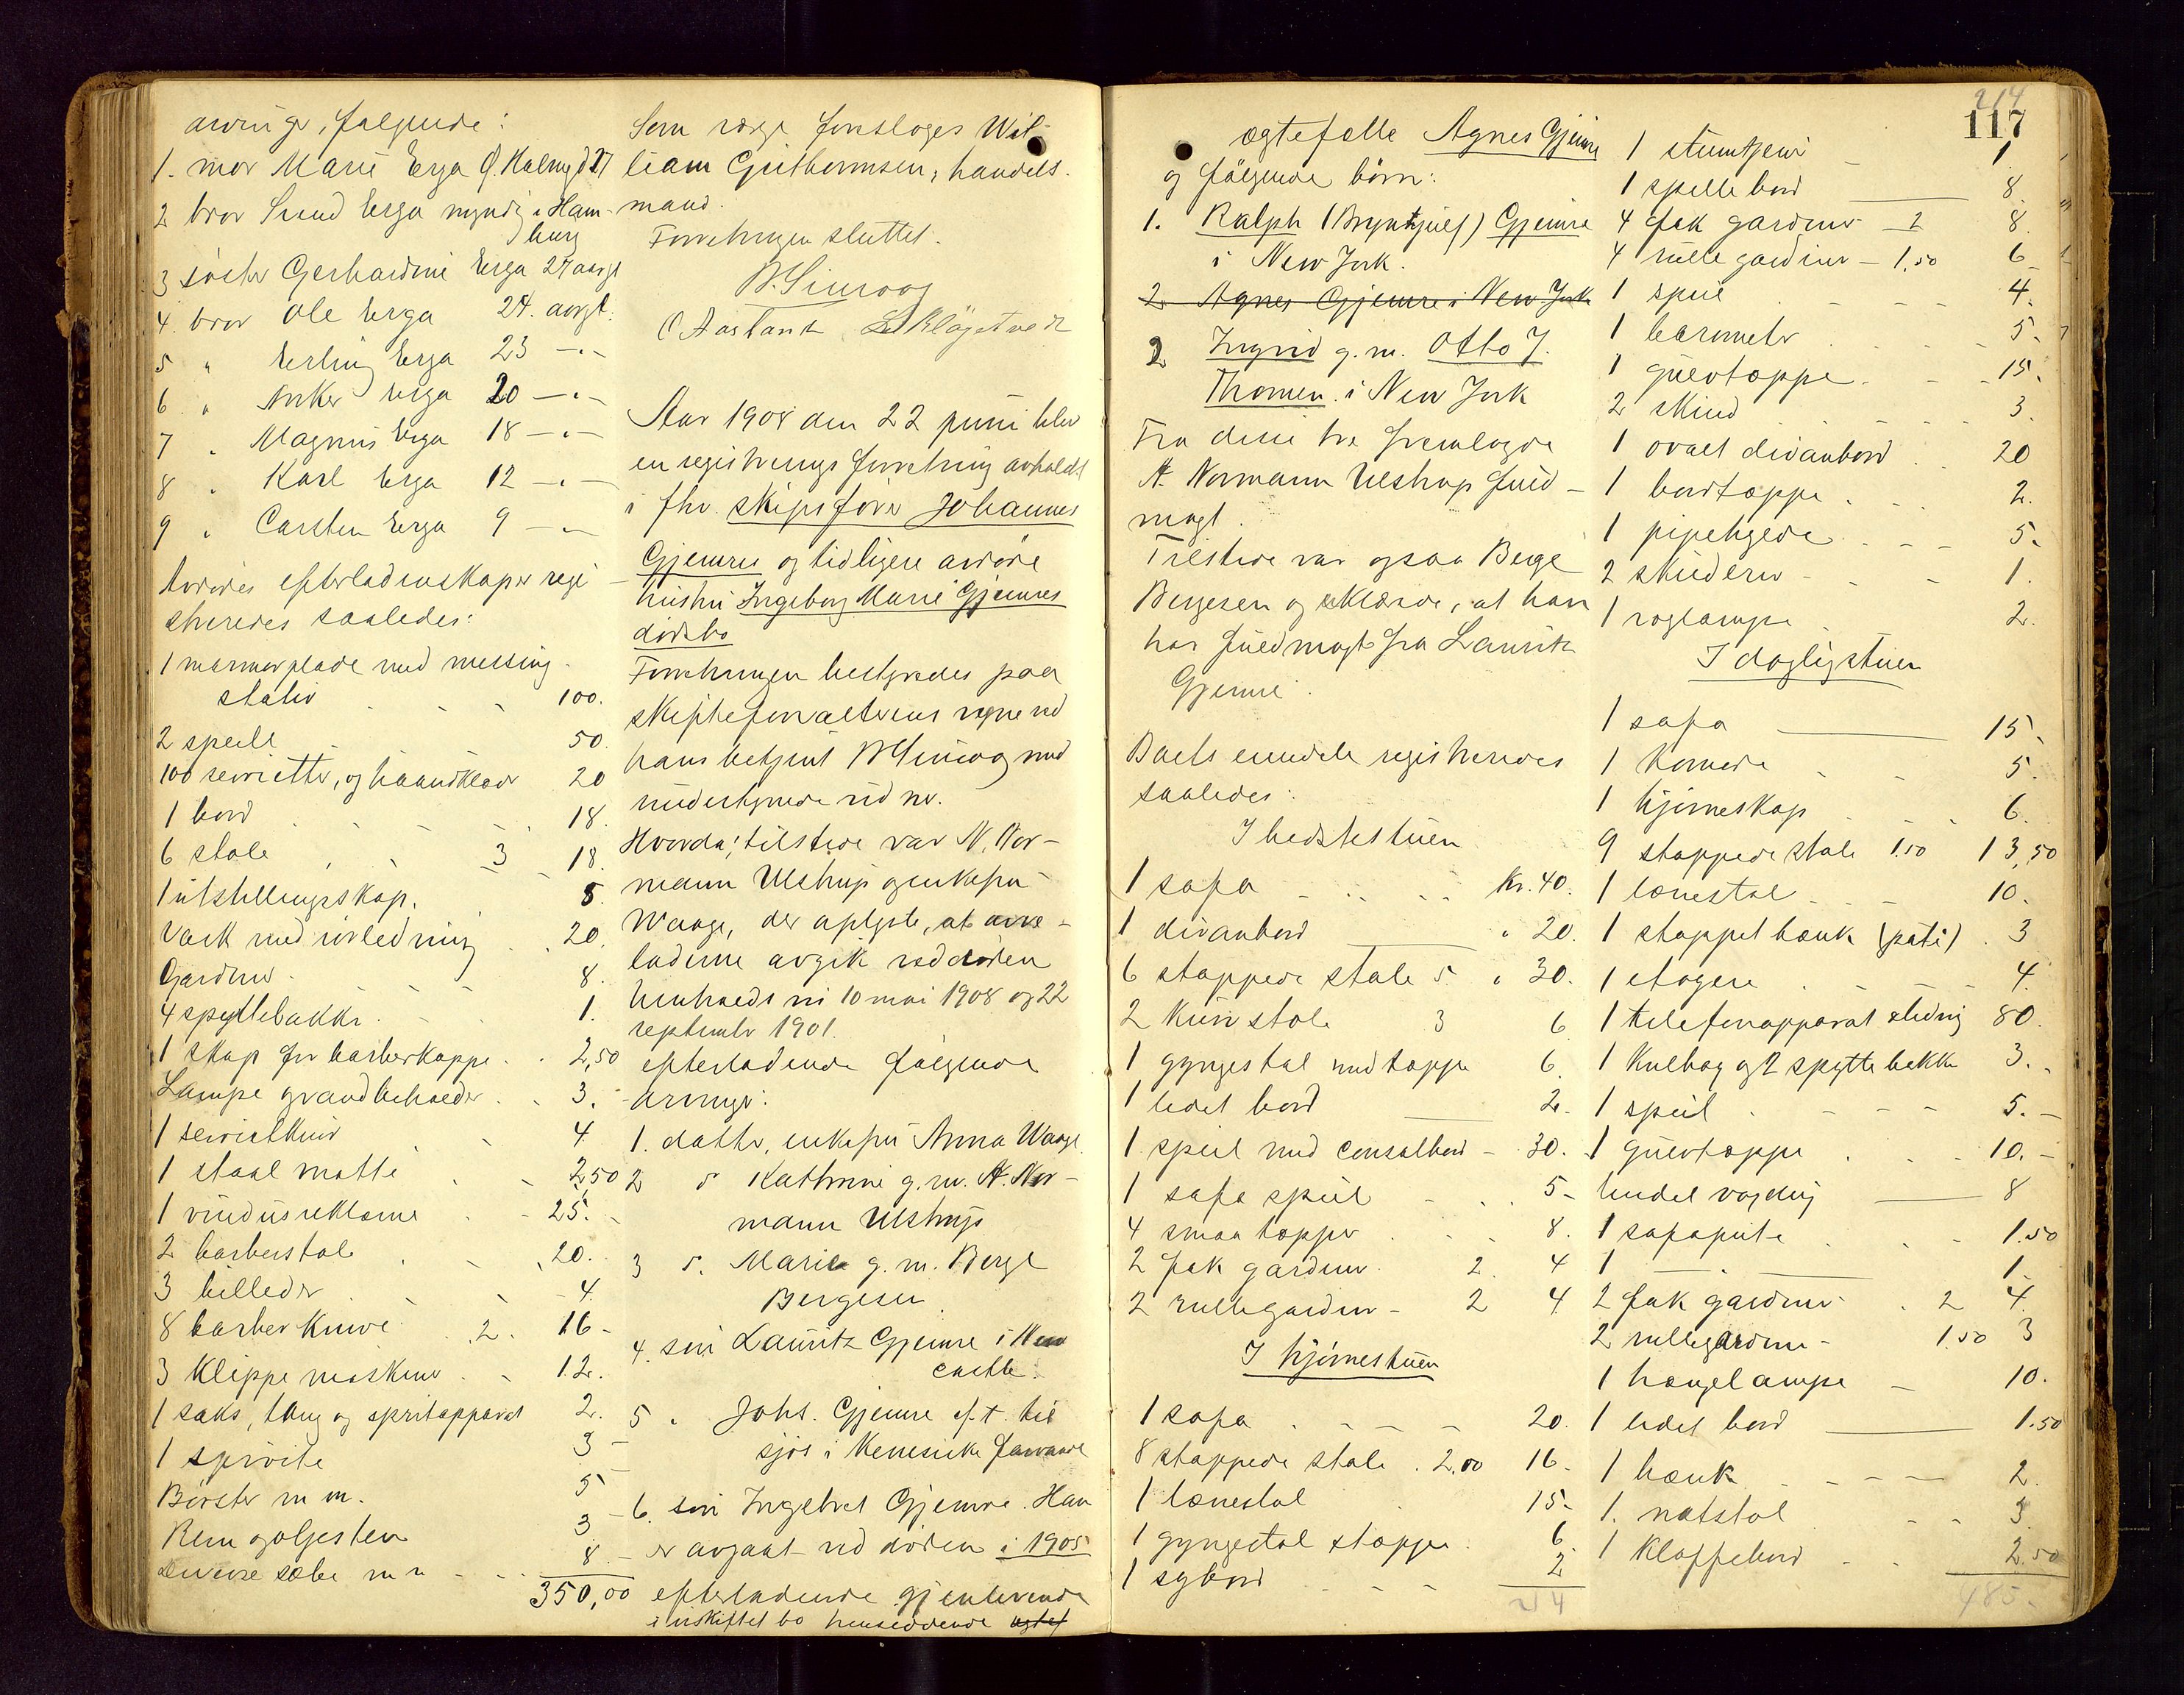 arvinger, følgende:
1. mor Marie Erga f. Halmyd 
2 bror Svend Erga myndig i Ham-
burg
3 søster Gerhardine Erga 27 aargl
4. bror Ole Erga 24. aargl.
5 " Erling Erga 23 -"-
6 " Anker Erga 20 -"-
7 " Magnus Erga 18 -"-
8 " Karl Erga 12 -"-
9 " Carsten Erga 9 -"-
Avdødes efterladenskaper regi-
streredes saaledes:
1 marmorplade med messing-
stativ 100.
2 speile 50.
100 servietter, og haandklæder 20
1 bord 18.
6 stole 3 18.
1 utstillingsskap. 8.
Vask med rørledning 20.
Gardiner 8.
4 spyttebakker 1.
1 skap for barberkopper 2,50
Lampe og vandbeholder 3.
1 4.
1 staal matte 2,50
1 vindusreklame 25.
2 barberstole 20.
3 billeder 4.
8 barberknive 2. 16-
3 klippemaskiner 12.
1 saks, tang og spritapparat 2.
1 sprøite 3-
Børster m m. 5
Rem og oljesten 3-
Diverse sæbe m m 8.-
350,00
Som værge foresloges Wil-
liam Guthormsen, handels-
mand.
Forretningen sluttet.
B. Simrog
O Aastank L Kløgetvedt
Aar 1908 den 22 juni blev
en registreringsforretning avholdt
i fhv. skipsfører Johannes
Gjemres og tidligere avdøde
hustru Ingeborg Marie Gjemres
dødsbo
Forretningen bestyredes paa
skifteforvalterens vegne ved
hans betjent B Simrog med
undertegnede vidner.
Hvorda: tilstede var N. Nor-
mann Ulstrup og enkefru
Waage, der oplyste, at arve-
laderne avgik ved døden
henholdsvis 10 mai 1908 og 22
september 1901.
efterladende følgende
arvinger:
1. datter, enkefru Anna Waage.
2 d Kathrine g. m. N. Nor-
mann Ulstrup
3 d. Marie g. m. Berge
Bergesen.
4. søn Lauritz Gjemre i New
castle.
5 " Johs. Gjemre f. t. til
sjøs i Kinesiske farvande
6. søn Ingebret Gjemre. Han
er avgaat ved døden i 1905
efterladende gjenlevende
i uskiftet bo hensiddende egtef
214
117
ægtefælle Agnes Gjemre
og følgende børn:
1. Ralph (Brynhjulf) Gjemre
i New York.
2. Agnes Gjemre i New York
2 Ingrid g. m. Otto J.
Thomen. i New York
Fra disse tre fremlagde
N. Normann Ulstrup fuld-
magt.
Tilstede var ogsaa Berge
Bergesen og erklærte, at han
har fuldmagt fra Lauritz
Gjemre.
Boets eiendele registreredes
saaledes:
I bedstestuen
1 sofa Kr. 40.
1 divanbord " 20.
6 stoppede stole 5. " 30.
2 kurvstole 3 6.
1 gyngestol med teppe 6.
1 lidet bord 2.
1 speil med consolbord - 30.
1 sofa speil 5-
4 smaa tepper 8.
2 fak gardiner 2. 4
2 rullegardiner - 2 4
I hjørnestuen
1 sofa 20.
8 stoppede stole. 2,00 16.
1 lænestol 15-
1 gyngestol stoppet 6.
1 sybord 2
214
1 stumtjener 1.
1 spillebord 8.
4 fak gardiner 2 8.
4 rullegardiner - 1,50 6
1 speil 4.
1 barometer 5.
1 gulvteppe 15.
2 skind 3.
1 ovalt divanbord 20
1 bordteppe 2.
1 pipehylde 5.
2 skilderier 1.
1 roglampe 2.
I dagligstuen
1 sofa 15.
1 komode 5.
1 hjørneskap 6.
9 stoppede stole 1.50 13,50
1 lænestol 10.
1 stoppet bænk (pute) 3
1 etagere 4.
1 telefonapparat 80.
1 kulboks og 2 spyttebakker 3.
1 speil 5.-
1 gulvteppe 10.-
Endel 8
1 sofapute 1.50
1 — " — 1.
2 fak gardiner 2 4.
2 rullegardiner - 1.50 3
1 hængelampe - 10.
1 lidet bord 1.50
1 bænk 2.
1. natstol 3.
1 klaffebord 2.50
485.